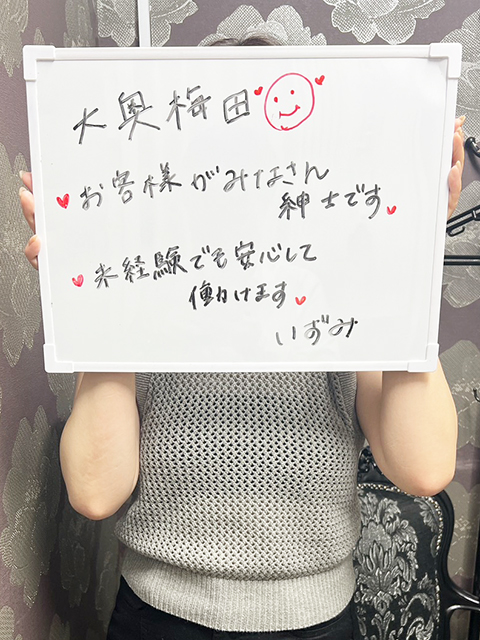 大奥梅田
お客様がみなさん
紳士です
未経験でも安心して
働けます
いずみ